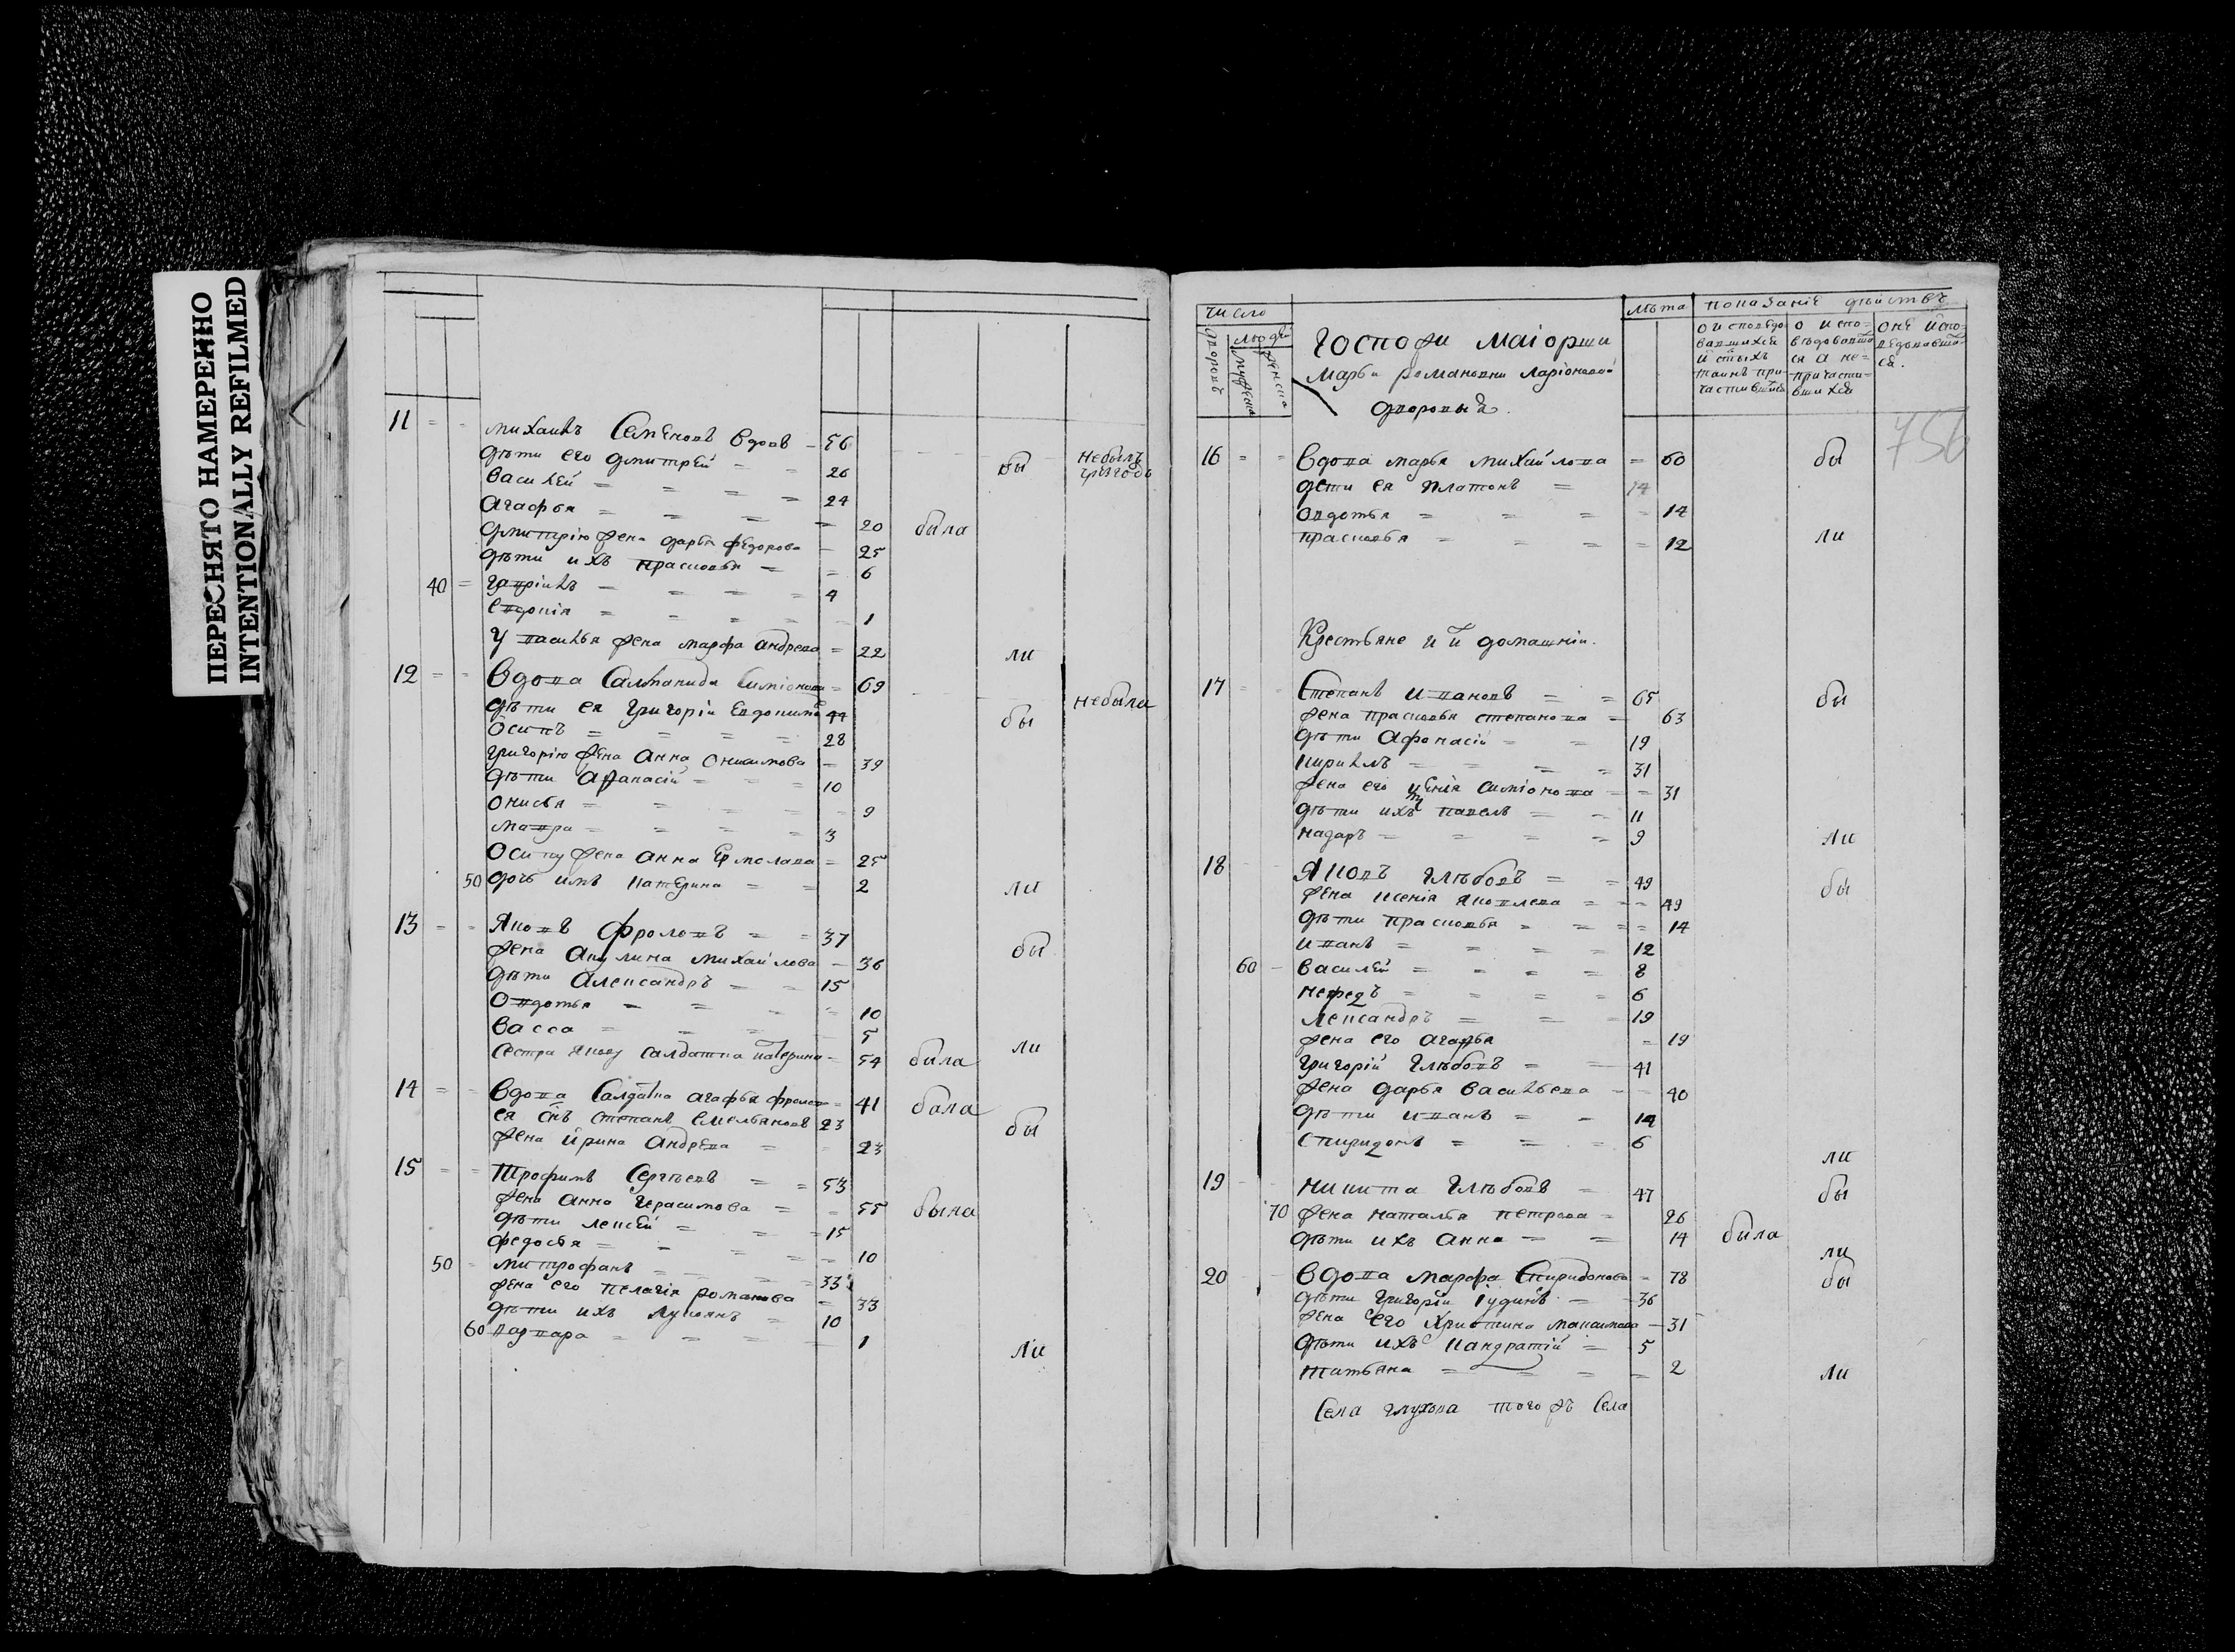 ПЕРЕСНЯТО НАМЕРЕННО
INTENTIONALLY REFILMED
11 михаилъ Семеновъ вдовъ 56
дѣти его дмитрей 26 бы небылъ
василей 24
агафья 20 была
дмитрію жена дарья федорова 25
дѣти ихъ прасковья 6
40 гавріилъ 4
Евдокія 1
У василья жена марфа андреева 22 ли
12 Вдова Саламанида Симіонова 69 небыла
дѣти ея Григорій Евдокимовъ 44 бы
Осипъ 28
григорію жена анна онисимова 39
дѣти Афанасій 10
онисья 9
мавра 3
Осипу жена анна Ермолаева 25
50 дочь имъ катерина 2 ли
13 Яковъ Фроловъ 37
жена Акулина михайлова 36 бы
дѣти Александръ 15
Овдотья 10
васса 5
сестра якову салдатка катерина 54 была ли
14 Вдова Салдатка агафья фролова 41 была
ея снъ степанъ Емельяновъ 23 бы
жена ирина андреева 23
15 Трофимъ Сергѣевъ 53
жена анна герасимова 55 была
дѣти лексей 15
федосья 10
50 митрофанъ 33
жена его пелагія романова 33
дѣти ихъ лукьянъ 10
60 варвара 1 ли
число
дворовъ
людей
мужеска
женска
Госпожи маіорши
марьи романовны ларіоновой
дворовыя
лѣта
показаніе дѣйствъ
о исповѣдо-
вавшихся
и стыхъ
таинъ при-
частившихся
о испо-
вѣдовавши
ся а не-
причасти-
вшихся
о не испо-
вѣдовавши-
ся.
756
16 Вдова марья михайлова 60 бы
дети ея платонъ 14
овдотья 14
прасковья 12 ли
Крестьяне и домашніи.
17 Степанъ ивановъ 65 бы
жена прасковья степанова 63
дѣти Афонасій 19
кирилъ 31
жена его симіонова 31
дѣти ихъ павелъ 11
назаръ 9 ли
18 Яковъ глѣбовъ 49 бы
жена ксенія яковлева 49
дѣти прасковья 14
иванъ 12
60 василей 8
нефедъ 6
лександръ 19
жена его агафья 19
григорій глѣбовъ 41
жена дарья васильева 40
дѣти иванъ 14
спиридонъ 6
ли
19 никита глѣбовъ 47 бы
70 жена наталья петрова 26
дѣти ихъ анна 14 была
ли
20 вдова марфа Спиридонова 78 бы
дѣти григорій іудинъ 36
жена его христина максимова 31
дѣти ихъ кандратій 5
татьяна 2 ли
Села глухова того жъ Села